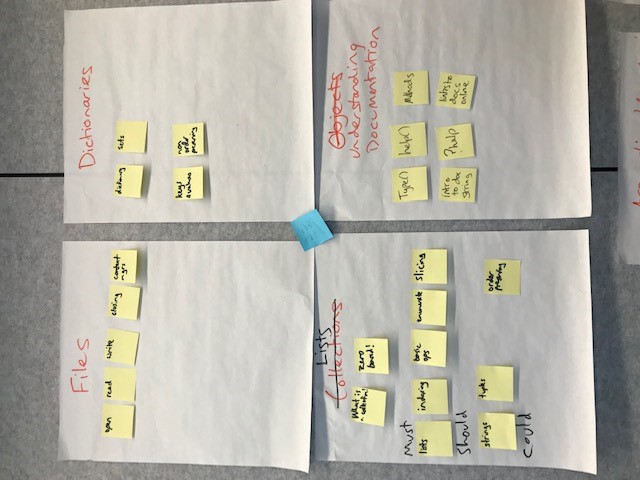 Files
open
read
write
closing
content
mgrs
Dictionaries
dictionary
sets
keys
& values
non
order
preserving
Lists
Collections
What is
a collection?
zero
based!
Must
lists
indexing
basic
ops
enumerate
slicing
Should
strings
tuples
order
preserving
Could
Objects
Understanding
Documentation
Type()
help()
Methods
intro
to doc
string
?help
links to
docs
online